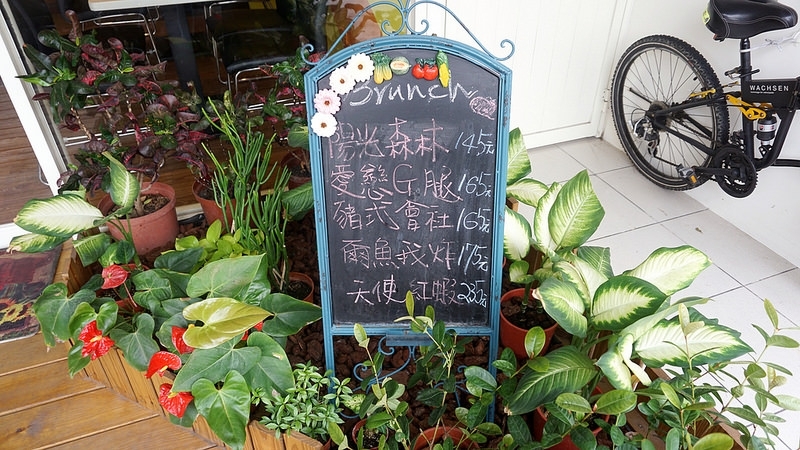 Brunch
陽光森林 145元
愛戀G腿 165元
豬式會社 165元
爾魚我炸 175元
天使紅蝦 235元
WACHSEN